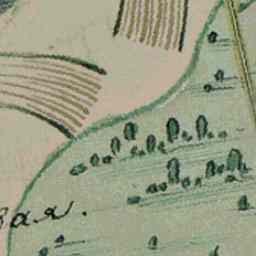 вая.